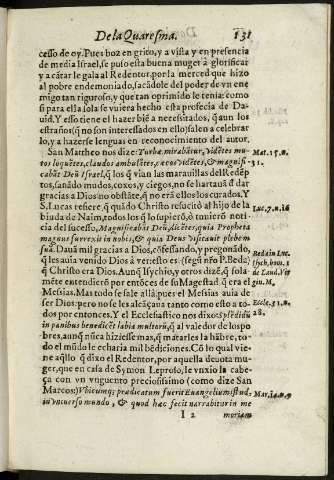 De la Quaresma. 131
cesso de oy. Pues boz en grito, y a vista y en presencia
de media Israel, se puso esta buena muger à glorificar
y a cãtar le gala al Redentor, por la merced que hizo
al pobre endemoniado, sacãdole del poder de vn ene
migo tan riguroso, y que tan oprimido le tenia: como
si para ella sola se vuiera hecho esta profecia de Da-
uid. Y esso tiene el hazer biẽ a necessitados, q̃ aun los
estraños (q̃ no son interessados en ello) salen a celebrar
lo, y a hazerse lenguas en reconocimiento del autor.
San Mattheo nos dize: Turbæ mirabãtur, vidẽtes mu-
tos loquẽtes, claudos ambulãtes, cæcos vidẽtes, & magnifi-
cabãt Deũ Israel, q̃ los q̃ viãn las marauillas del Redẽp
tos, sanãdo mudos, coxos, y ciegos, no se hartauã d̃ dar
gracias a Dios no obstãte, q̃ no erã ellos los curados. Y
S. Lucas refiere, q̃ quãdo Christo resucitò al hijo de la
biuda de Naim, todos los q̃ lo supierõ, ò tuuierõ noti-
cia del successo, Magnificabãt Deũ, dicẽtes, quia Propheta
magnus surrexit in nobis, & quia Deus visitauit plebem
suã. Dauã mil gracias a Dios, cõfessando, y pregonãdo,
q̃ les auia venido Dios à ver: esto es (segũ nr̃o P. Beda)
q̃ Christo era Dios. Aunq̃ Isychio, y otros dizẽ, q̃ sola-
mẽte entendierõ por entõces de su Magestad q̃ era el
Messias. Mas todo se sale allà, pues el Messias auia de
ser Dios: pero no se les alcãçaua tanto como esto a to-
dos por entonces. Y el Ecclesiastico nos dixo: Splẽdidũ
in panibus benedicẽt labia multorũ, q̃ al valedor de los po-
bres, aunq̃ nũca hiziesse mas, q̃ matarles la hãbre, to-
do el mũdo le echaria mil bẽdiciones. Cõ lo qual vie-
ne aq̃llo q̃ dixo el Redentor, por aquella deuota mu-
ger, que en casa de Symon Leproso, le vnxio la cabe-
ça con vn vnguento preciosissimo (como dize San
Marcos:) Vbicumq; prædicatum fuerit Euangelium istud,
in vniuerso mundo, & quod hæc fecit narrabitur in me
I 2 moriam
Mat. 15. n.
31.
Luc. 7. n. 16
Beda in Luc.
Isych. hom. 1
de Laud. Vir
gin. M.
Eccle. 31. n.
28.
Mar. 14. n. 9